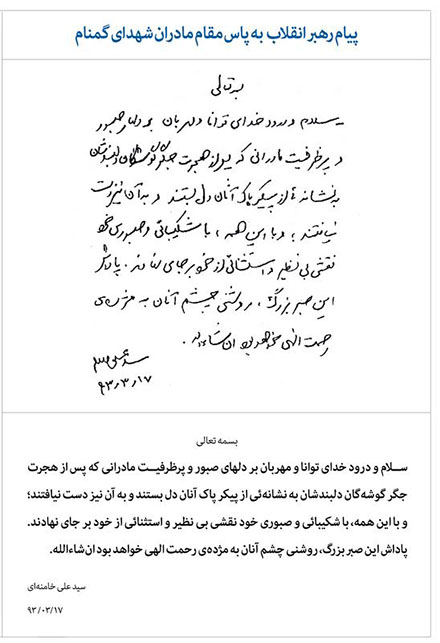 پیام رهبر انقلاب به پاس مقام مادران شهدای گمنام
بسمه تعالی
سلام و درود خدای توانا و مهربان بر دلهای صبور
و پرظرفیت مادرانی که پس از هجرت جگر گوشه‌گان دلبندشان
به نشانه‌ئی از پیکر پاک آنان دل بستند و به آن نیز دست
نیافتند؛ و با این همه، با شکیبائی و صبوری خود
نقشی بی نظیر و استثنائی از خود بر جای نهادند. پاداش
این صبر بزرگ، روشنی چشم آنان به مژده‌ی
رحمت الهی خواهد بود ان شاءالله.
سید علی خامنه‌ای
۹۳/۳/۱۷
بسمه تعالی
سلام و درود خدای توانا و مهربان بر دلهای صبور و پرظرفیت مادرانی که پس از هجرت
جگر گوشه‌گان دلبندشان به نشانه‌ئی از پیکر پاک آنان دل بستند و به آن نیز دست نیافتند؛
و با این همه، با شکیبائی و صبوری خود نقشی بی نظیر و استثنائی از خود بر جای نهادند.
پاداش این صبر بزرگ، روشنی چشم آنان به مژده‌ی رحمت الهی خواهد بود ان‌شاءالله.
سید علی خامنه‌ای
۹۳/۰۳/۱۷